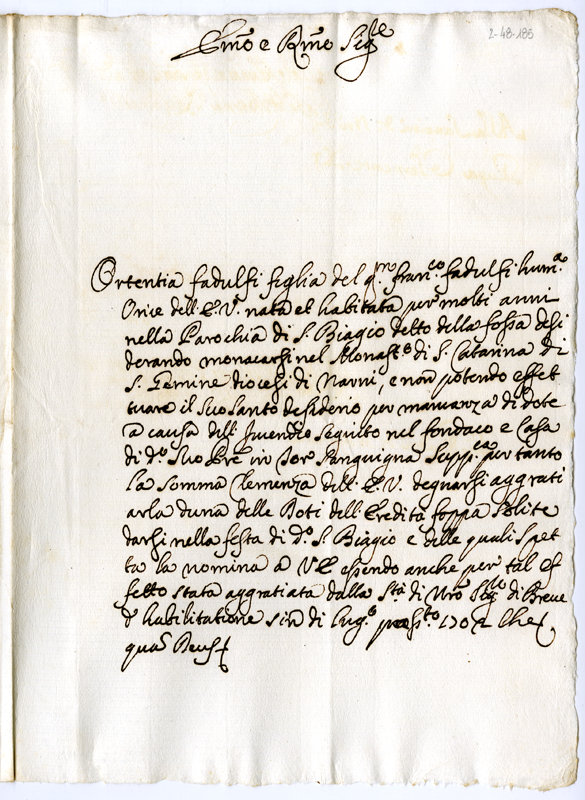 2-48-185
Emo e Rmo Sigre
Ortentia fadulfi figlia del qm franco fadulfi humma
Orice dell'E.V. nata et habitata per molti anni
nella Parochia di S. Biagio detto della fossa desi
derando monacarsi nel Monasto di S. Catarina di
S. Gemine diocesi di Narni, e non potendo effet
tuare il suo santo desiderio per mancanza di dote
a causa dell'Incendio seguito nel fondaco e Casa
di do suo Pre in Tor Sanguigna Suppca per tanto
la somma Clemenza dell'E.V. degnarsi aggrati
arla d'una delle Doti dell'Eredità foppa solite
darsi nella festa di do S. Biagio e delle quali spet
ta la nomina a VE essendo anche per tal ef
fetto stata aggratiata dalla Stà di Nro Sigre di Breve
d'habilitatione sin di Lugo passto 1702 Che
quas Deus